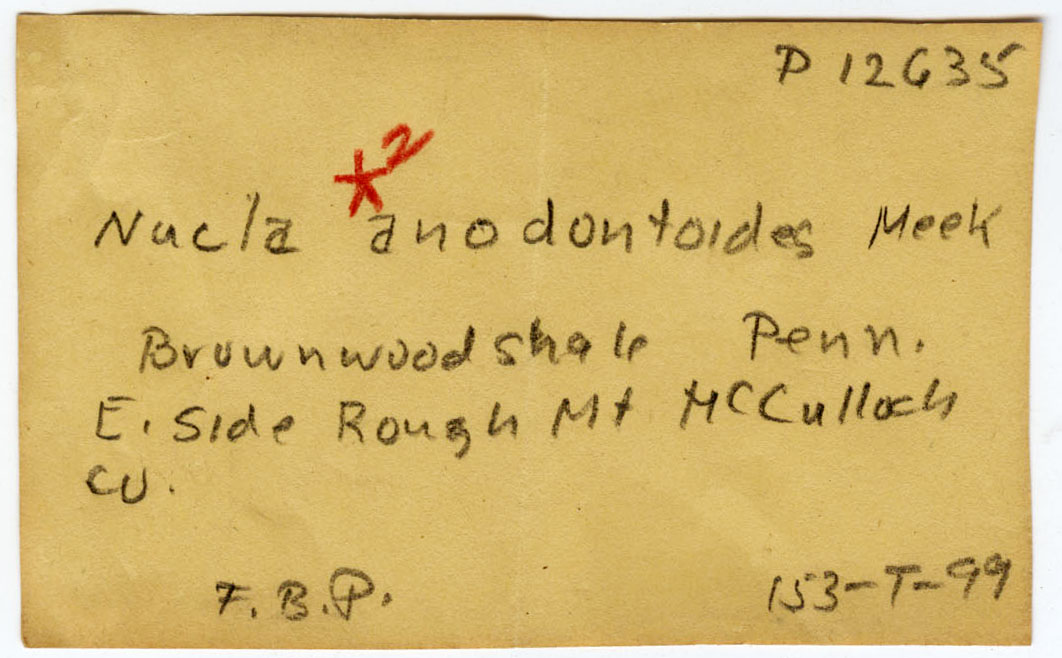 P 12635
*2
Nucla anodontoides Meek
Brownwood shale Penn.
E. Side Rough Mt McCulloch
Co.
F.B.P. 153-T-99